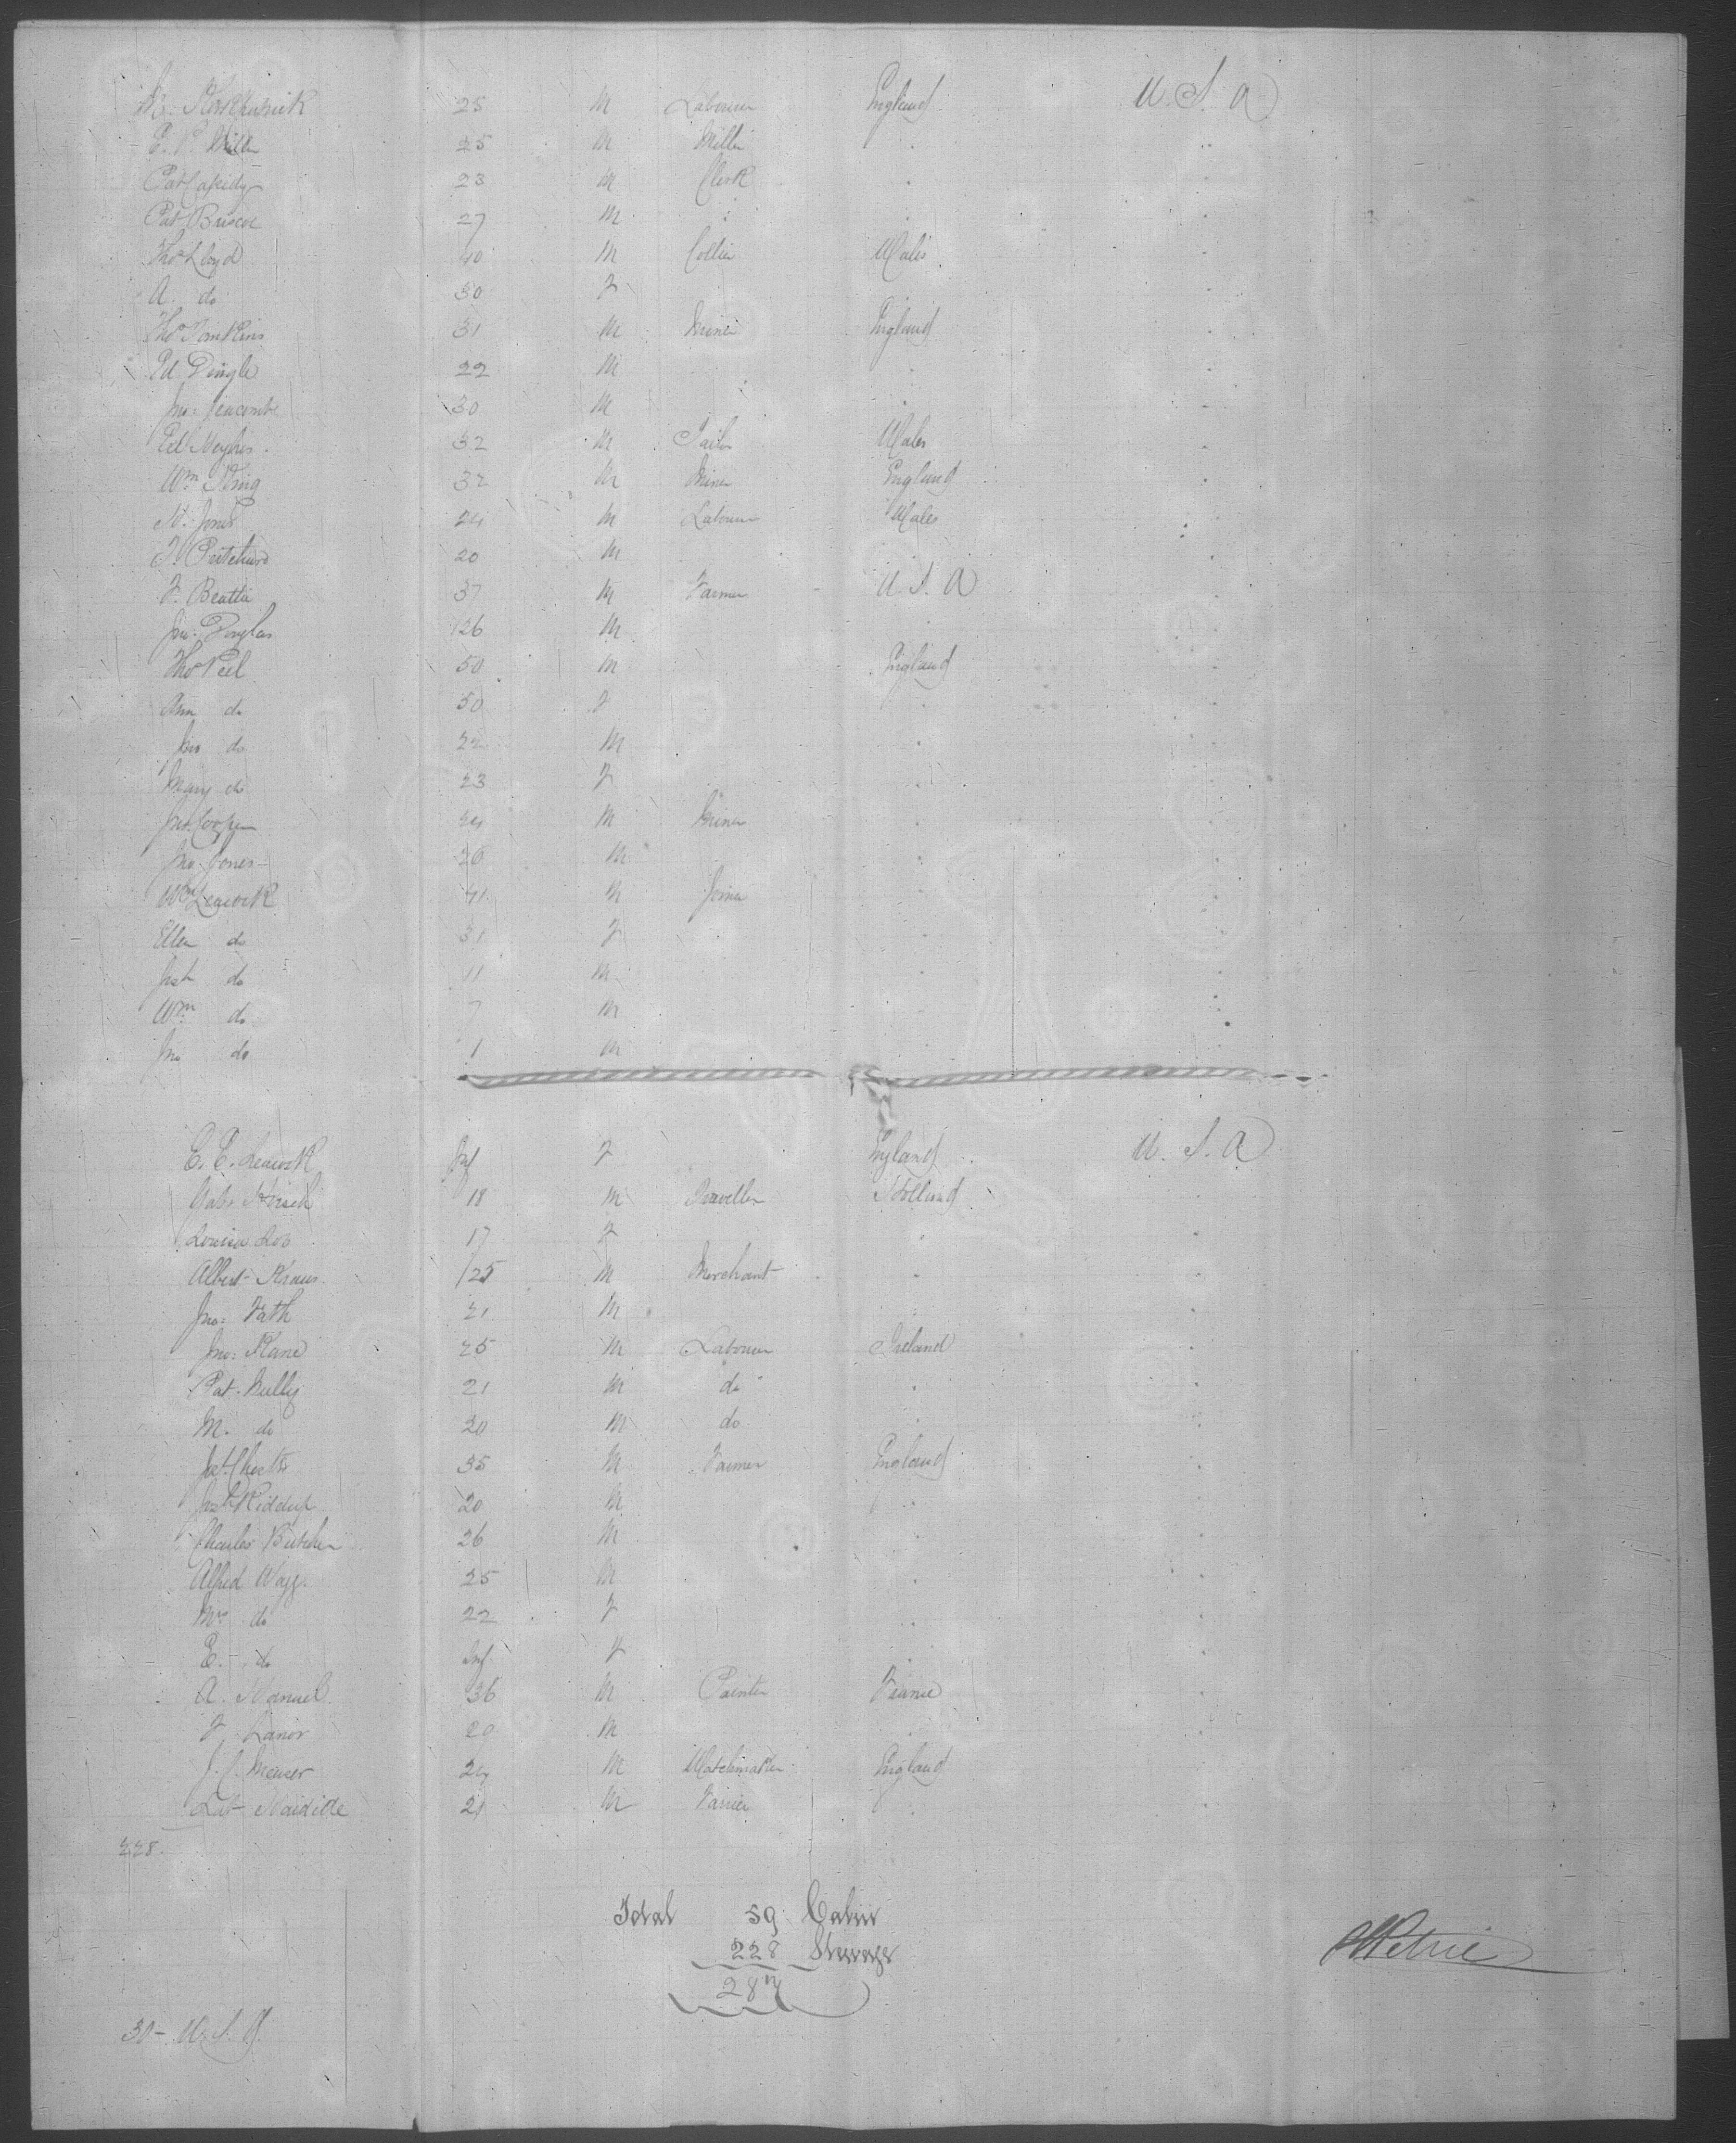 25 M Labourer England U.S.A
E. P. Miller 25 M Miller "
Pat Cassidy 23 M Clerk "
Pat Briscoe 27 M " "
Thos Lloyd 40 M Collier Wales
A. do 30 F
Thos Tomkins 31 M Miner England
Ed Dingle 22 M
Jno: Jeacombe 30 M
Ed 32 M Tailor Wales
Wm King 32 M Miner England
N. Jones 24 M Labourer Wales
T. Pritchard 20 M
F. Beattie 37 M Farmer U.S.A
Jno: Douglas 26 M
Thos Peel 50 M England
Ann do 50 F
Jno do 22 M
Mary do 23 F
Jno. Cooper 24 M Miner
Jno. Jones 26 M
Wm Leacock 41 M Joiner
Ellen do 31 F
Josh do 11 M
Wm do 7 M
Jno do 1 M
E. E. Leacock Inf F England U.S.A
Gabr Hirsch 18 M Traveller Holland
Louisa Loo 17 F
Albert Kraus 25 M Merchant
Jno: Fath 21 M
Jno: Kane 25 M Labourer Ireland
Pat. Mully 21 M do
M. do 20 M do
35 M Farmer England
Josh 20 M
Charles Butcher 26 M
Alfred Wagg. 25 M
Mrs do 22 F
E. do Inf. F
A. Manuel 36 M Painter France
F. Lanor 20 M
J. C. Mercer 24 M Watchmaker England
21 M
228.
Total 59 Cabin
228 Steerage
287
Petrie
30 - U.S.A.